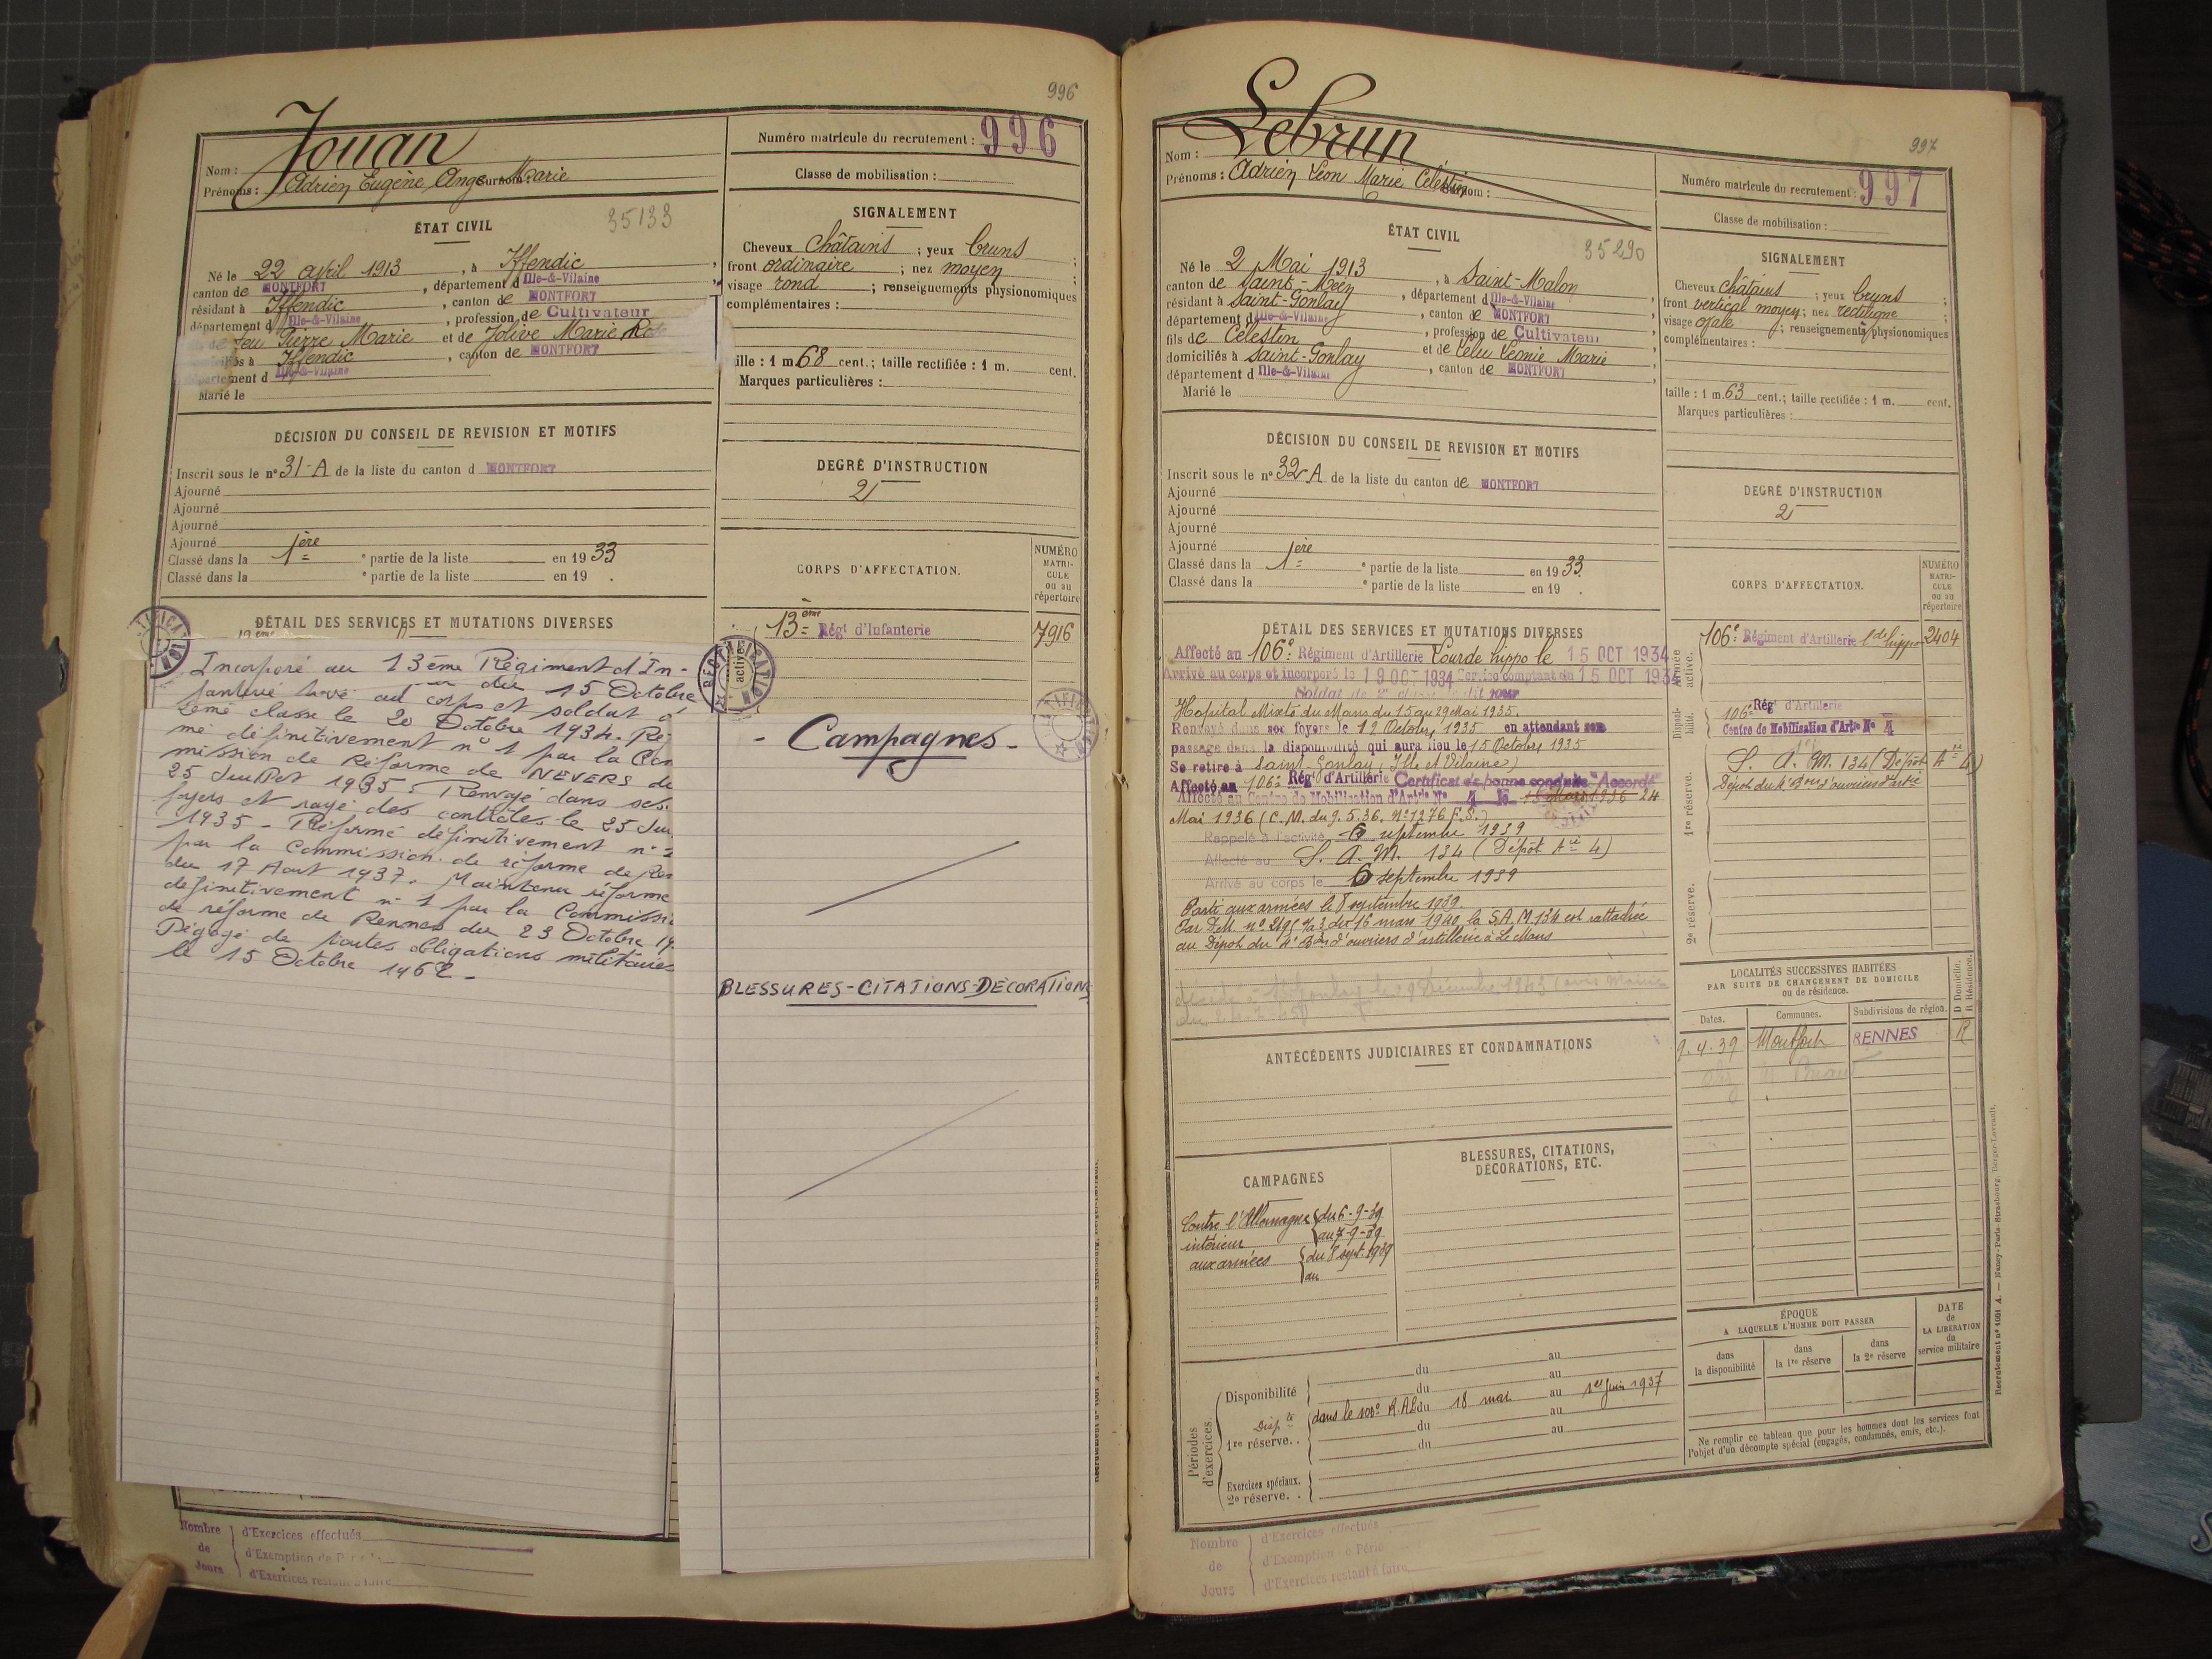 996
Jouan
Nom :
Prénoms : Adrien Eugène Ange Marie
Surnom :
ÉTAT CIVIL
35133
Né le 22 avril 1913, à Iffendic
canton de MONTFORT, département d Ille-&-Vilaine
résidant à Iffendic, canton de MONTFORT
département d Ille-&-Vilaine, profession de Cultivateur
feu Pierre Marie et de Jolive Marie
à Iffendic, canton de MONTFORT
département d Ille-&-Vilaine
Marié le
DÉCISION DU CONSEIL DE REVISION ET MOTIFS
Inscrit sous le n° 31-A de la liste du canton d MONTFORT
Ajourné
Ajourné
Ajourné
Ajourné
Classé dans la 1ère e partie de la liste en 1933
Classé dans la e partie de la liste en 19 .
DÉTAIL DES SERVICES ET MUTATIONS DIVERSES
Incorporé au 13ème Régiment d'In-
du 15 Octobre
au corps et soldat
2ème classe le 20 Octobre 1934. Ré
mé définitivement n° 1 par la Com
mission de Réforme de NEVERS du
25 Juillet 1935. Renvoyé dans ses
foyers et rayé des contrôles le 25 Jui
1935 - Réformé définitivement n°
par la Commission de réforme de Ren
du 17 Aout 1937. Maintenu réformé
définitivement n° 1 par la Commissi
de réforme de Rennes du 23 Octobre 19
Dégagé de toutes obligations militaires
le 15 Octobre 1962 -
Nombre de Jours
d'Exercices effectués
d'Exemption de
d'Exercices restant à faire
Numéro matricule du recrutement : 996
Classe de mobilisation :
SIGNALEMENT
Cheveux châtains ; yeux bruns ;
front ordinaire ; nez moyen ;
visage rond ; renseignements physionomiques
complémentaires :
aille : 1 m. 68 cent.; taille rectifiée : 1 m. cent.
Marques particulières :
DEGRÉ D'INSTRUCTION
2
CORPS D'AFFECTATION.
NUMÉRO MATRI-CULE ou au répertoire
13ème Régt d'Infanterie 7916
RECTIFICATION
active
- Campagnes -
BLESSURES-CITATIONS-DECORATIONS
997
Lebrun
Nom :
Prénoms : Adrien Léon Marie Célestin
Surnom :
ÉTAT CIVIL
35290
Né le 2 Mai 1913, à Saint-Malon
canton de Saint-Méen, département d Ille-&-Vilaine
résidant à Saint-Gonlay, canton de MONTFORT
département d Ille-&-Vilaine, profession de Cultivateur
fils de Célestin et de Lelu Léonie Marie
domiciliés à Saint-Gonlay, canton de MONTFORT
département d Ille-&-Vilaine
Marié le
DÉCISION DU CONSEIL DE REVISION ET MOTIFS
Inscrit sous le n° 32-A de la liste du canton de MONTFORT
Ajourné
Ajourné
Ajourné
Ajourné
Classé dans la 1ère e partie de la liste en 1933.
Classé dans la e partie de la liste en 19 .
DÉTAIL DES SERVICES ET MUTATIONS DIVERSES
Affecté au 106e Régiment d'Artillerie Lourde hippo le 15 OCT 1934
Arrivé au corps et incorporé le 19 OCT 1934 Service comptant du 15 OCT 1934
Soldat de 2e classe le dit jour
Hopital Mixte du Mans du 15 au 29 Mai 1935.
Renvoyé dans ses foyers le 12 Octobre 1935 en attendant son
passage dans la disponibilité qui aura lieu le 15 Octobre 1935
Se retire à Saint-Gonlay (Ille et Vilaine)
Affecté au 106e Régt d'Artillerie Certificat de bonne conduite "Accordé"
Affecté au Centre de Mobilisation d'Artie No 4 le 24
Mai 1936 (C.M. du 9.5.36. N° 1276 F.S.)
Rappelé à l'activité 6 septembre 1939
Affecté au S. A. M. 134 (Dépôt Aie 4)
Arrivé au corps le 6 septembre 1939
Parti aux armées le 8 septembre 1939.
du 16 mars 1940, la S.A.M. 134 est rattachée
au Dépôt du 4e Bon d'ouvriers d'artillerie à Le Mans
le 29 Décembre 1943 (avis Mairie
ANTÉCÉDENTS JUDICIAIRES ET CONDAMNATIONS
CAMPAGNES
Contre l'Allemagne
intérieur du 6-9-39 au 7-9-39
aux armées du 8 sept. 1939
au
BLESSURES, CITATIONS,
DÉCORATIONS, ETC.
Périodes d'exercices.
Disponibilité du au
du au
Dispté dans le 106e R.A.L. du 18 mai au 1er Juin 1937
1re réserve. . du au
du au
Exercices spéciaux.
2e réserve. .
Nombre de Jours
d'Exercices effectués
d'Exemption de Pério
d'Exercices restant à faire
Numéro matricule du recrutement : 997
Classe de mobilisation :
SIGNALEMENT
Cheveux châtains ; yeux bruns ;
front vertical moyen ; nez rectiligne
visage ovale ; renseignements physionomiques
complémentaires :
taille : 1 m. 63 cent.; taille rectifiée : 1 m. cent.
Marques particulières :
DEGRÉ D'INSTRUCTION
2
CORPS D'AFFECTATION.
NUMÉRO MATRI-CULE ou au répertoire
Armée active.
106e Régiment d'Artillerie Lde hippo 2404
Disponibilité.
106e Régt d'Artillerie
Centre de Mobilisation d'Artie No 4
1re réserve.
S. A. M. 134 (Dépôt Aie 4)
Dépôt du 4e Bon d'ouvriers d'artie
2e réserve.
LOCALITÉS SUCCESSIVES HABITÉES
PAR SUITE DE CHANGEMENT DE DOMICILE
ou de résidence.
Dates. Communes. Subdivisions de région. D Domicile. R Résidence.
9.4.39 Montfort RENNES R
ÉPOQUE
A LAQUELLE L'HOMME DOIT PASSER
dans la disponibilité
dans la 1re réserve
dans la 2e réserve
DATE de LA LIBÉRATION du service militaire
Ne remplir ce tableau que pour les hommes dont les services font
l'objet d'un décompte spécial (engagés, condamnés, omis, etc.).
Recrutement n° 1001 A. — Nancy-Paris-Strasbourg, Berger-Levrault.